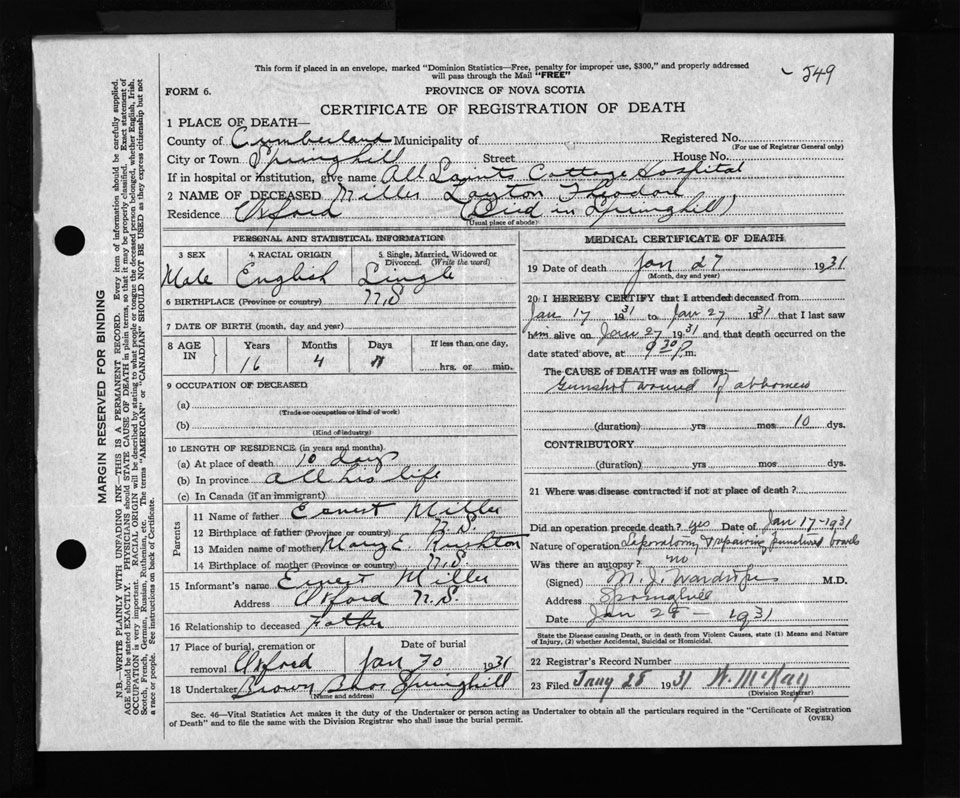 This form if placed in an envelope, marked "Dominion Statistics—Free, penalty for improper use, $300," and properly addressed
will pass through the Mail "FREE"
549
FORM 6.
PROVINCE OF NOVA SCOTIA
CERTIFICATE OF REGISTRATION OF DEATH
1 PLACE OF DEATH—
County of Cumberland Municipality of Registered No.
(For use of Registrar General only)
City or Town Springhill Street House No.
If in hospital or institution, give name All Saints Cottage Hospital
2 NAME OF DECEASED Miller Layton Theodore
Residence Oxford (Died in Springhill)
(Usual place of abode)
PERSONAL AND STATISTICAL INFORMATION
3 SEX 4 RACIAL ORIGIN 5 Single, Married, Widowed or
Divorced. (Write the word)
Male English Single
6 BIRTHPLACE (Province or country) N.S
7 DATE OF BIRTH (month, day and year)
8 AGE IN Years Months Days If less than one day,
16 4 hrs. or min.
9 OCCUPATION OF DECEASED
(a)
(Trade or occupation or kind of work)
(b)
(Kind of industry)
10 LENGTH OF RESIDENCE (in years and months)
(a) At place of death 10 days
(b) In province all his life
(c) In Canada (if an immigrant)
Parents
11 Name of father Ernest Miller
12 Birthplace of father (Province or country) N.S.
13 Maiden name of mother Mary E. Rushton
14 Birthplace of mother (Province or country) N.S.
15 Informant's name Ernest Miller
Address Oxford N.S.
16 Relationship to deceased Father
17 Place of burial, cremation or Date of burial
removal Oxford Jan 30 1931
18 Undertaker Brown Bros Springhill
(Name and address)
MEDICAL CERTIFICATE OF DEATH
19 Date of death Jan 27 1931
(Month, day and year)
20 I HEREBY CERTIFY that I attended deceased from
Jan 17 1931 to Jan 27 1931 that I last saw
him alive on Jan 27 1931 and that death occurred on the
date stated above, at 9 30 P m.
The CAUSE of DEATH was as follows:
Gunshot wound of abdomen
(duration) yrs mos 10 dys.
CONTRIBUTORY
(duration) yrs mos dys.
21 Where was disease contracted if not at place of death?
Did an operation precede death? yes Date of Jan 17-1931
Nature of operation Laparotomy & repairing punctured bowels
Was there an autopsy? no
(Signed) M. J. Wardrope M.D.
Address Springhill
Date Jan 28 — 1931
State the Disease causing Death, or in death from Violent Causes, state (1) Means and Nature
of Injury, (2) whether Accidental, Suicidal or Homicidal.
22 Registrar's Record Number
23 Filed Jany 28 1931 W. McKay
(Division Registrar)
Sec. 46—Vital Statistics Act makes it the duty of the Undertaker or person acting as Undertaker to obtain all the particulars required in the "Certificate of Registration
of Death" and to file the same with the Division Registrar who shall issue the burial permit.
(OVER)
MARGIN RESERVED FOR BINDING
N.B.—WRITE PLAINLY WITH UNFADING INK—THIS IS A PERMANENT RECORD. Every item of information should be carefully supplied.
AGE should be stated EXACTLY. PHYSICIANS should STATE CAUSE OF DEATH in plain terms, so that it may be properly classified. Exact statement of
OCCUPATION is very important. RACIAL ORIGIN will be described by stating to what people or tongue the deceased person belonged, whether English, Irish,
Scotch, French, German, Russian, Ruthenian, etc. The terms "AMERICAN" or "CANADIAN" SHOULD NOT BE USED as they express citizenship but not
a race or people. See instructions on back of Certificate.